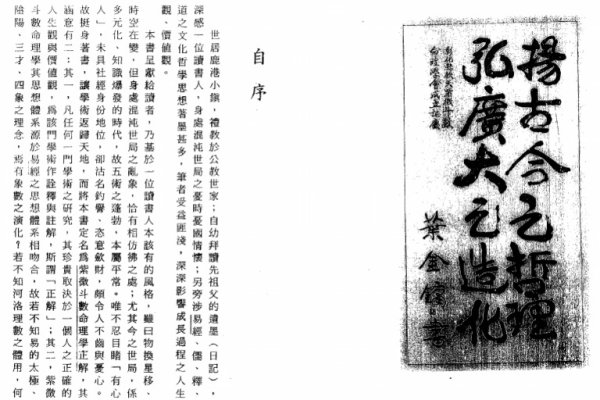 揚古今之哲理
弘廣大之造化
葉金
書
自序
世居鹿港小鎮，禮教於公教世家；自幼拜讀先祖父的遺墨（日記），
深感一位讀書人，身處混沌世局之憂時憂國情懷；另旁涉易經、儒、釋、
道之文化哲學思想著墨甚多，筆者受益匪淺，深深影響成長過程之人生
觀、價值觀。
本書呈獻給讀者，乃基於一位讀書人本該有的風格，雖曰物換星移、
時空在變，但身處混沌世局之亂象，恰有相仿彿之處；尤其今之世局，係
多元化、知識爆發的時代，故五術之蓬勃，本屬平常。唯不忍目睹「有心
人」，未具社經身份地位，卻沽名釣譽、恣意斂財，頗令人不齒與憂心。
故挺身著書，讓學術返歸天地，而將本書定名為紫微斗數命理學正解，其
涵意有二：其一，凡任何一門學術之研究，其珍貴取決於一個人之正確的
人生觀與價值觀，為該門學術作詮釋與註解，斯謂「正解」；其二，紫微
斗數命理學其思想體系源於易經之思想體系相吻合，故若不知易的太極、
陰陽、三才，四象之理念，焉有象數之演化？若不知河洛理數之體用，何